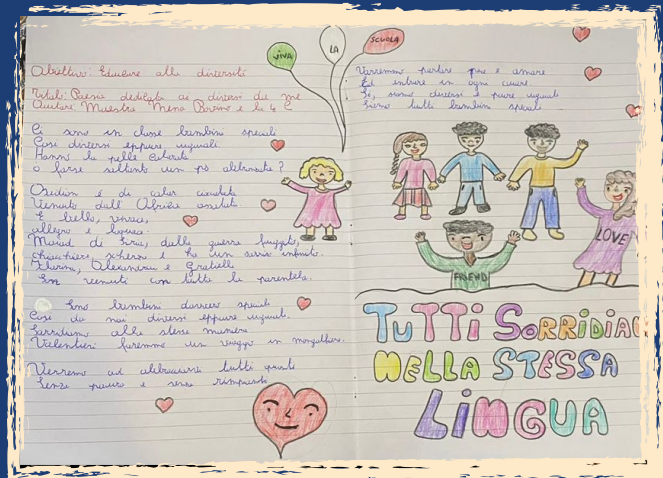 VIVA
LA
SCUOLA
Obiettivo: Educare alla diversità
Titolo: Poesia dedicata ai diversi da me
Autore: Maestra Nena e la 4 C
Ci sono in classe bambini speciali
Così diversi eppure uguali
Hanno la pelle colorata
o forse soltanto un pò abbronzata?
è di color cioccolata
Venuto dall'Africa assetata.
È bello, vivace,
allegro e loquace.
Morad di Siria, dalla guerra fuggito,
chiacchiera, scherza e ha un sorriso infinito.
Alexandru e Gratiela
Son venuti con tutta la parentela.
Sono bambini davvero speciali
Così da noi diversi eppure uguali.
Sorridiamo alla stessa maniera
Volentieri faremmo un viaggio in mongolfiera.
Verremo ad abbracciarvi tutti quanti
Senza paura e senza
Vorremmo portare pace e amore
Ed entrare in ogni cuore.
Sì, siamo diversi e pure uguali
Siamo tutti bambini speciali
LOVE
FRIEND
TUTTI SORRIDIAM
NELLA STESSA
LINGUA